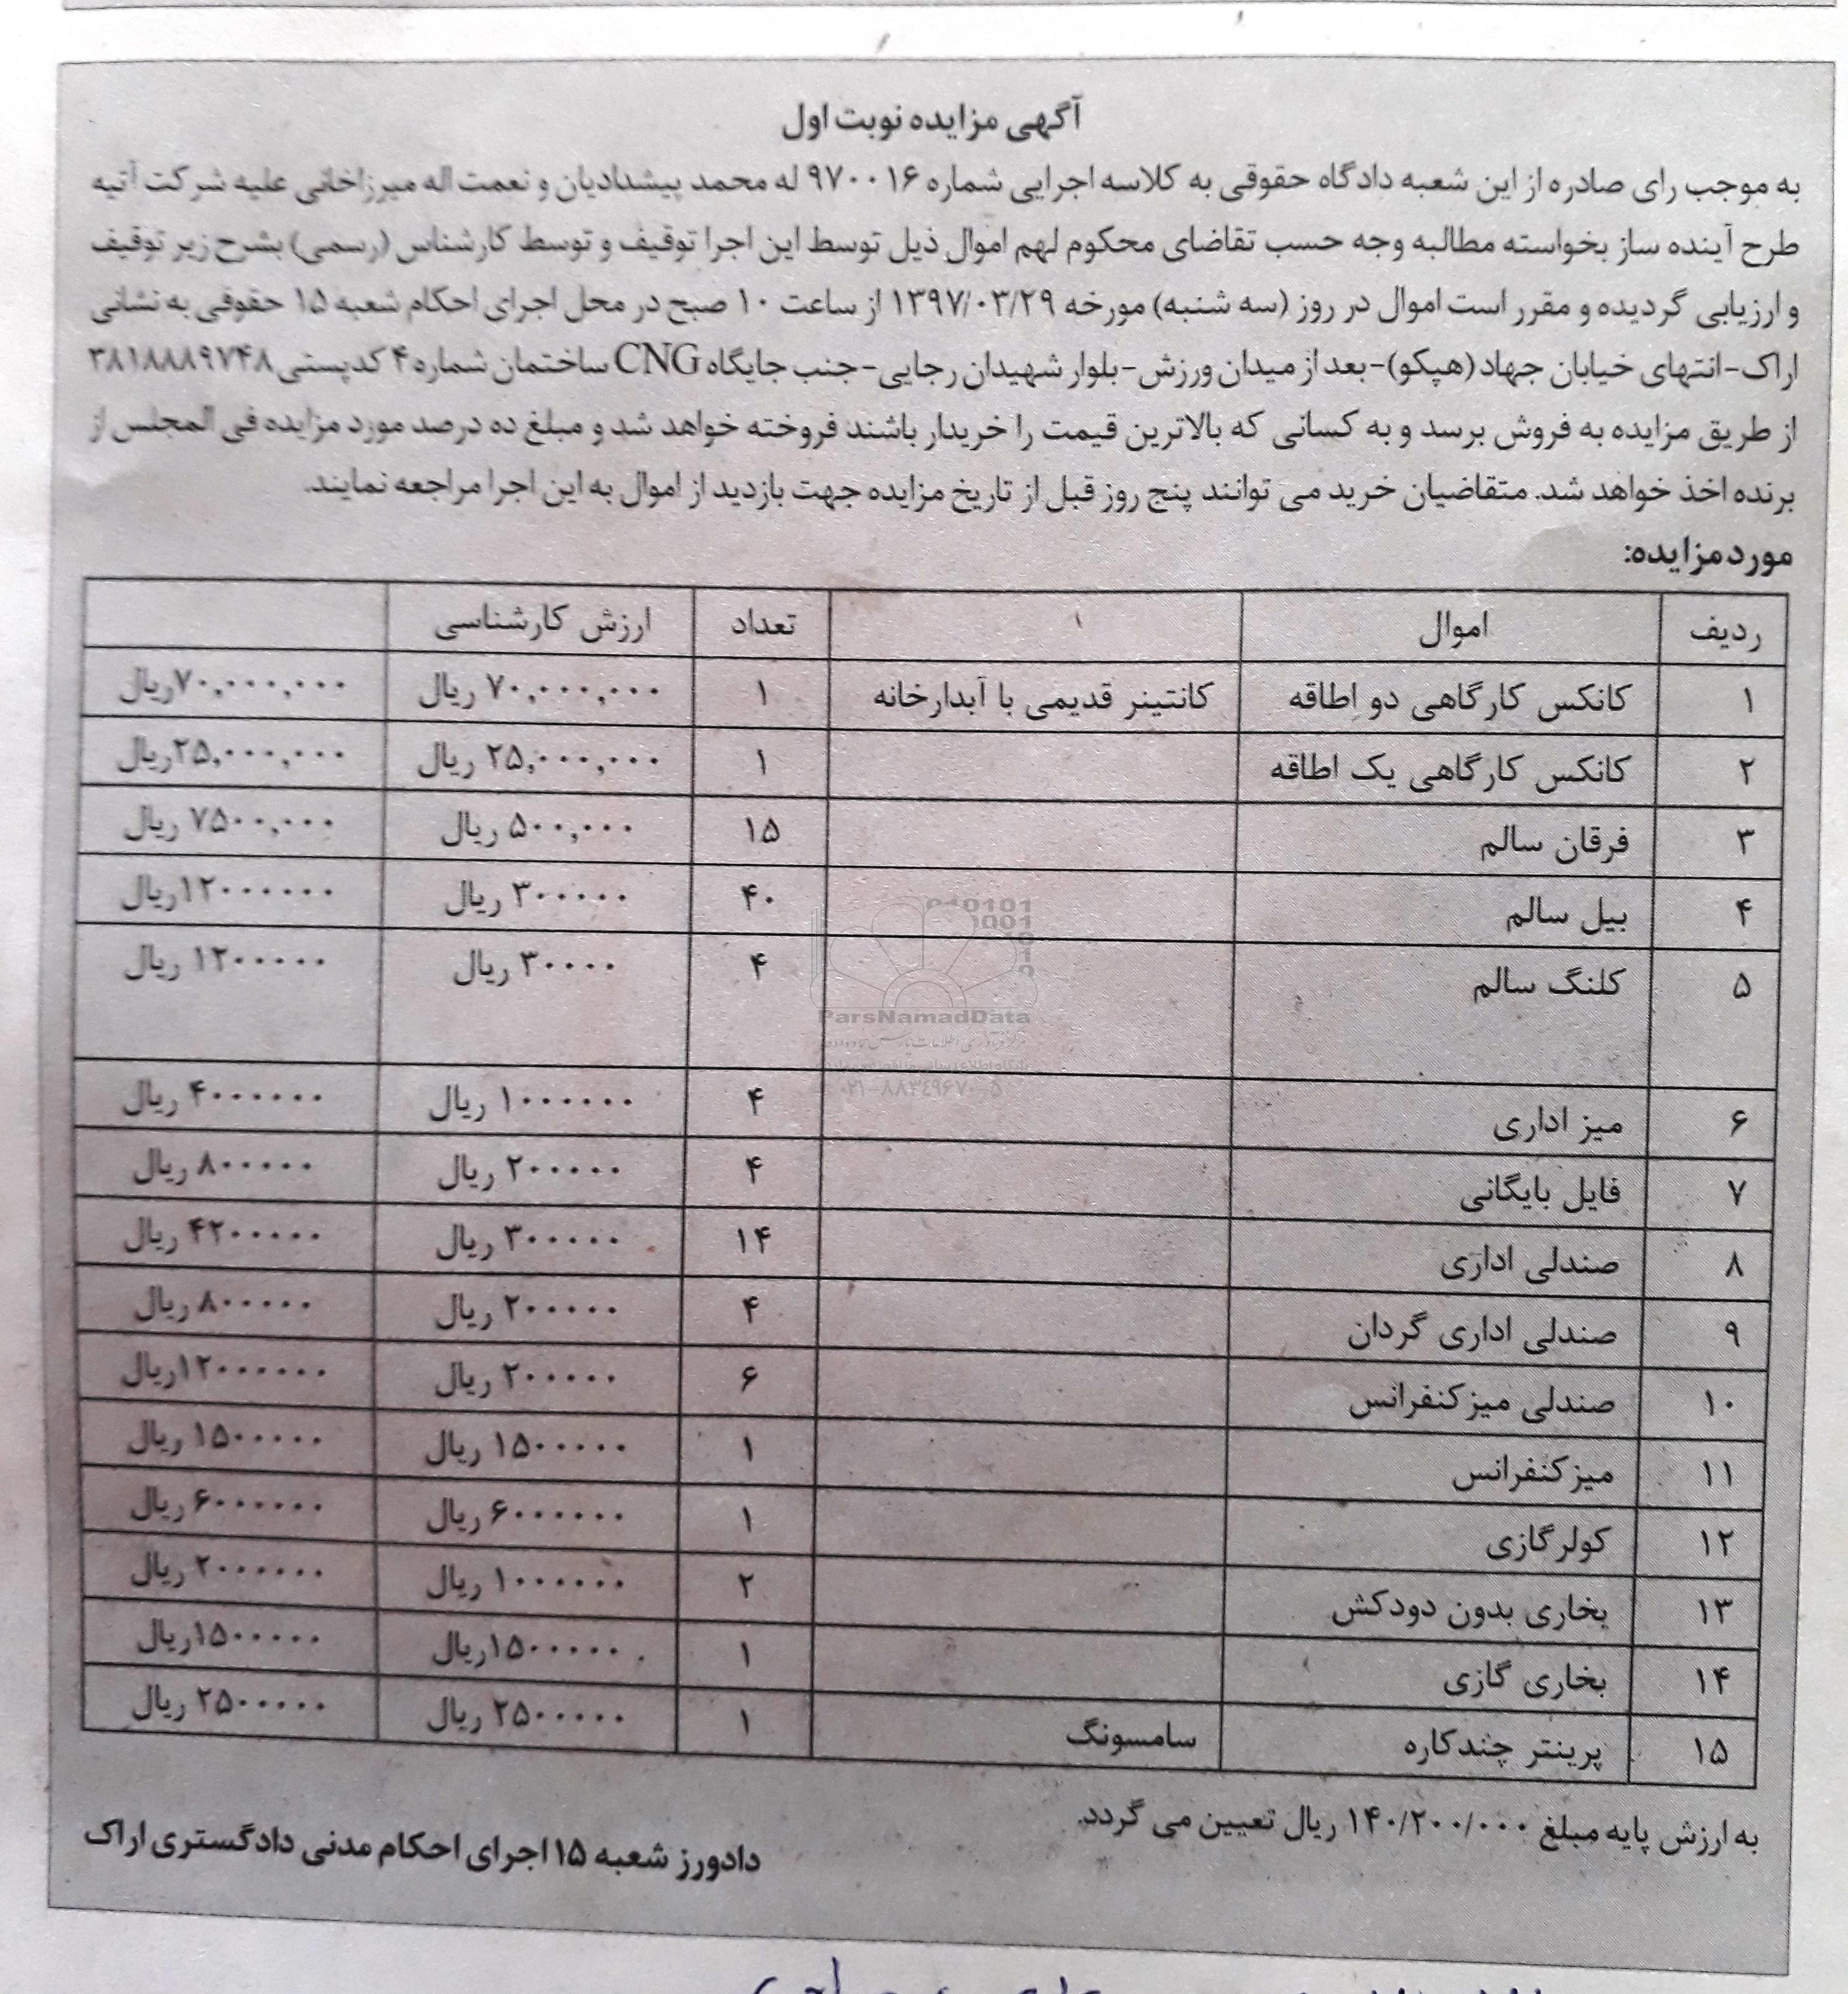 آگهی مزایده نوبت اول
به موجب رای صادره از این شعبه دادگاه حقوقی به کلاسه اجرایی شماره ۹۷۰۰۱۶ له محمد پیشدادیان و نعمت اله میرزاخانی علیه شرکت آتیه
طرح آینده ساز بخواسته مطالبه وجه حسب تقاضای محکوم لهم اموال ذیل توسط این اجرا توقیف و توسط کارشناس (رسمی) بشرح زیر توقیف
و ارزیابی گردیده و مقرر است اموال در روز (سه شنبه) مورخه ۱۳۹۷/۰۳/۲۹ از ساعت ۱۰ صبح در محل اجرای احکام شعبه ۱۵ حقوقی به نشانی
اراک-انتهای خیابان جهاد (هپکو)-بعد از میدان ورزش-بلوار شهیدان رجایی-جنب جایگاه CNG ساختمان شماره ۴ کدپستی ۳۸۱۸۸۸۹۷۴۸
از طریق مزایده به فروش برسد و به کسانی که بالاترین قیمت را خریدار باشند فروخته خواهد شد و مبلغ ده درصد مورد مزایده فی المجلس از
برنده اخذ خواهد شد. متقاضیان خرید می توانند پنج روز قبل از تاریخ مزایده جهت بازدید از اموال به این اجرا مراجعه نمایند.
مورد مزایده:
ردیف اموال تعداد ارزش کارشناسی
۱ کانکس کارگاهی دو اطاقه کانتینر قدیمی با آبدارخانه ۱ ۷۰,۰۰۰,۰۰۰ ریال ۷۰,۰۰۰,۰۰۰ریال
۲ کانکس کارگاهی یک اطاقه ۱ ۲۵,۰۰۰,۰۰۰ ریال ۲۵,۰۰۰,۰۰۰ریال
۳ فرقان سالم ۱۵ ۵۰۰,۰۰۰ ریال ۷۵۰۰,۰۰۰ ریال
۴ بیل سالم ۴۰ ۳۰۰۰۰۰ ریال ۱۲۰۰۰۰۰۰ریال
۵ کلنگ سالم ۴ ۳۰۰۰۰ ریال ۱۲۰۰۰۰۰ ریال
۶ میز اداری ۴ ۱۰۰۰۰۰۰ ریال ۴۰۰۰۰۰۰ ریال
۷ فایل بایگانی ۴ ۲۰۰۰۰۰ ریال ۸۰۰۰۰۰ ریال
۸ صندلی اداری ۱۴ ۳۰۰۰۰۰ ریال ۴۲۰۰۰۰۰ ریال
۹ صندلی اداری گردان ۴ ۲۰۰۰۰۰ ریال ۸۰۰۰۰۰ ریال
۱۰ صندلی میز کنفرانس ۶ ۲۰۰۰۰۰ ریال ۱۲۰۰۰۰۰۰ریال
۱۱ میز کنفرانس ۱ ۱۵۰۰۰۰۰ ریال ۱۵۰۰۰۰۰ ریال
۱۲ کولر گازی ۱ ۶۰۰۰۰۰۰ ریال ۶۰۰۰۰۰۰ ریال
۱۳ بخاری بدون دودکش ۲ ۱۰۰۰۰۰۰ ریال ۲۰۰۰۰۰۰ ریال
۱۴ بخاری گازی ۱ ۱۵۰۰۰۰۰ریال ۱۵۰۰۰۰۰ریال
۱۵ پرینتر چندکاره سامسونگ ۱ ۲۵۰۰۰۰۰ ریال ۲۵۰۰۰۰۰ ریال
به ارزش پایه مبلغ ۱۴۰/۲۰۰/۰۰۰ ریال تعیین می گردد.
دادورز شعبه ۱۵ اجرای احکام مدنی دادگستری اراک
ParsNamadData
۰۲۱-۸۸۳۴۹۶۷۰-۵